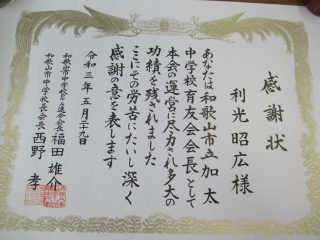 感謝状
利光昭広様
あなたは和歌山市立加太
中学校育友会会長として
本会の運営に尽力され多大の
功績を残されました
ここにその労苦にたいし深く
感謝の意を表します
令和三年五月二十九日
和歌山市中学校育友会連合会会長 福田雄介
和歌山市中学校長会会長 西野孝